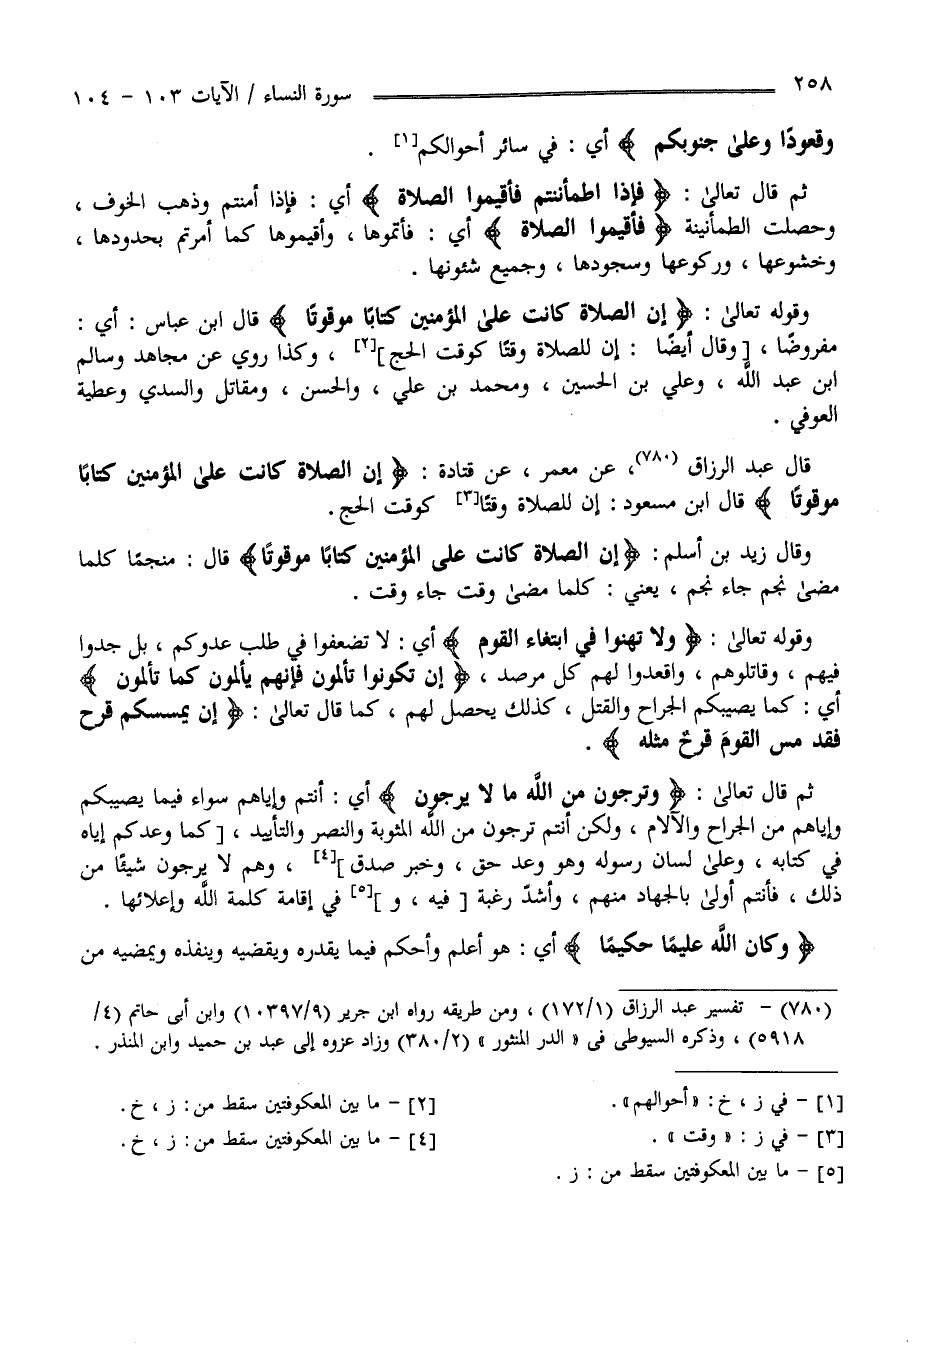 ٢٥٨ سورة النساء / الآيات ١٠٣ - ١٠٤
وقعودًا وعلىٰ جنوبكم ﴾ أي : في سائر أحوالكم[١] .
ثم قال تعالىٰ : ﴿ فإذا اطمأننتم فأقيموا الصلاة ﴾ أي : فإذا أمنتم وذهب الخوف ،
وحصلت الطمأنينة ﴿ فأقيموا الصلاة ﴾ أي : فأتموها ، وأقيموها كما أمرتم بحدودها ،
وخشوعها ، وركوعها وسجودها ، وجميع شئونها .
وقوله تعالىٰ : ﴿ إن الصلاة كانت علىٰ المؤمنين كتابًا موقوتًا ﴾ قال ابن عباس : أي :
مفروضًا ، [ وقال أيضًا : إن للصلاة وقتًا كوقت الحج ][٢] ، وكذا روي عن مجاهد وسالم
ابن عبد اللَّه ، وعلي بن الحسين ، ومحمد بن علي ، والحسن ، ومقاتل والسدي وعطية
العوفي .
قال عبد الرزاق (٧٨٠)، عن معمر ، عن قتادة : ﴿ إن الصلاة كانت علىٰ المؤمنين كتابًا
موقوتًا ﴾ قال ابن مسعود : إن للصلاة وقتًا[٣] كوقت الحج .
وقال زيد بن أسلم : ﴿إن الصلاة كانت على المؤمنين كتابًا موقوتًا﴾ قال : منجمًا كلما
مضىٰ نجم جاء نجم ، يعني : كلما مضىٰ وقت جاء وقت .
وقوله تعالىٰ : ﴿ ولا تهنوا في ابتغاء القوم ﴾ أي : لا تضعفوا في طلب عدوكم ، بل جدوا
فيهم ، وقاتلوهم ، واقعدوا لهم كل مرصد ، ﴿ إن تكونوا تألمون فإنهم يألمون كما تألمون ﴾
أي : كما يصيبكم الجراح والقتل ، كذلك يحصل لهم ، كما قال تعالىٰ : ﴿ إن يمسسكم قرح
فقد مس القومَ قرحٌ مثله ﴾ .
ثم قال تعالىٰ : ﴿ وترجون من اللَّه ما لا يرجون ﴾ أي : أنتم وإياهم سواء فيما يصيبكم
وإياهم من الجراح والآلام ، ولكن أنتم ترجون من اللَّه المثوبة والنصر والتأييد ، [ كما وعدكم إياه
في كتابه ، وعلىٰ لسان رسوله وهو وعد حق ، وخبر صدق ][٤] ، وهم لا يرجون شيئًا من
ذلك ، فأنتم أولىٰ بالجهاد منهم ، وأشدّ رغبة [ فيه ، و ][٥] في إقامة كلمة اللَّه وإعلائها .
﴿ وكان اللَّه عليمًا حكيمًا ﴾ أي : هو أعلم وأحكم فيما يقدره ويقضيه وينفذه ويمضيه من
(٧٨٠) - تفسير عبد الرزاق (١٧٢/١) ، ومن طريقه رواه ابن جرير (١٠٣٩٧/٩) وابن أبى حاتم (٤/
٥٩١٨) ، وذكره السيوطى فى « الدر المنثور » (٣٨٠/٢) وزاد عزوه إلى عبد بن حميد وابن المنذر .
[١] - في ز ، خ : «أحوالهم» .
[٢] - ما بين المعكوفتين سقط من : ز ، خ .
[٣] - في ز : « وقت » .
[٤] - ما بين المعكوفتين سقط من : ز ، خ .
[٥] - ما بين المعكوفتين سقط من : ز .